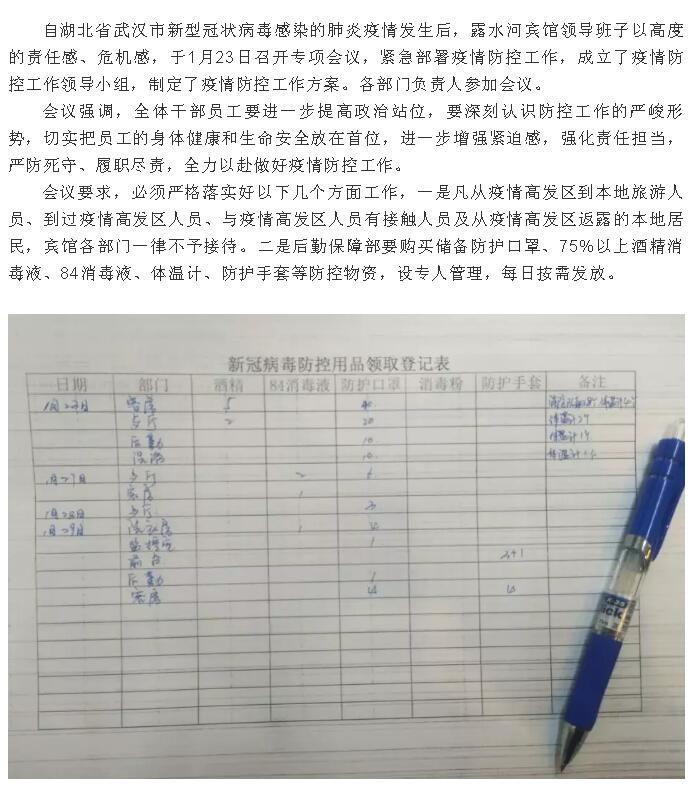 自湖北省武汉市新型冠状病毒感染的肺炎疫情发生后，露水河宾馆领导班子以高度
的责任感、危机感，于1月23日召开专项会议，紧急部署疫情防控工作，成立了疫情防
控工作领导小组，制定了疫情防控工作方案。各部门负责人参加会议。
会议强调，全体干部员工要进一步提高政治站位，要深刻认识防控工作的严峻形
势，切实把员工的身体健康和生命安全放在首位，进一步增强紧迫感，强化责任担当，
严防死守、履职尽责，全力以赴做好疫情防控工作。
会议要求，必须严格落实好以下几个方面工作，一是凡从疫情高发区到本地旅游人
员、到过疫情高发区人员、与疫情高发区人员有接触人员及从疫情高发区返露的本地居
民，宾馆各部门一律不予接待。二是后勤保障部要购买储备防护口罩、75%以上酒精消
毒液、84消毒液、体温计、防护手套等防控物资，设专人管理，每日按需发放。
新冠病毒防控用品领取登记表
日期 部门 酒精 84消毒液 防护口罩 消毒粉 防护手套 备注
客房 5 40
2 20 体温计2个
后勤 10 体温计1个
洗浴 10
1月27日 2
客房 1
1月28日 3
1月29日 洗衣房 1 4
监控室 1
前台 3+1
后勤 1
客房 4 4